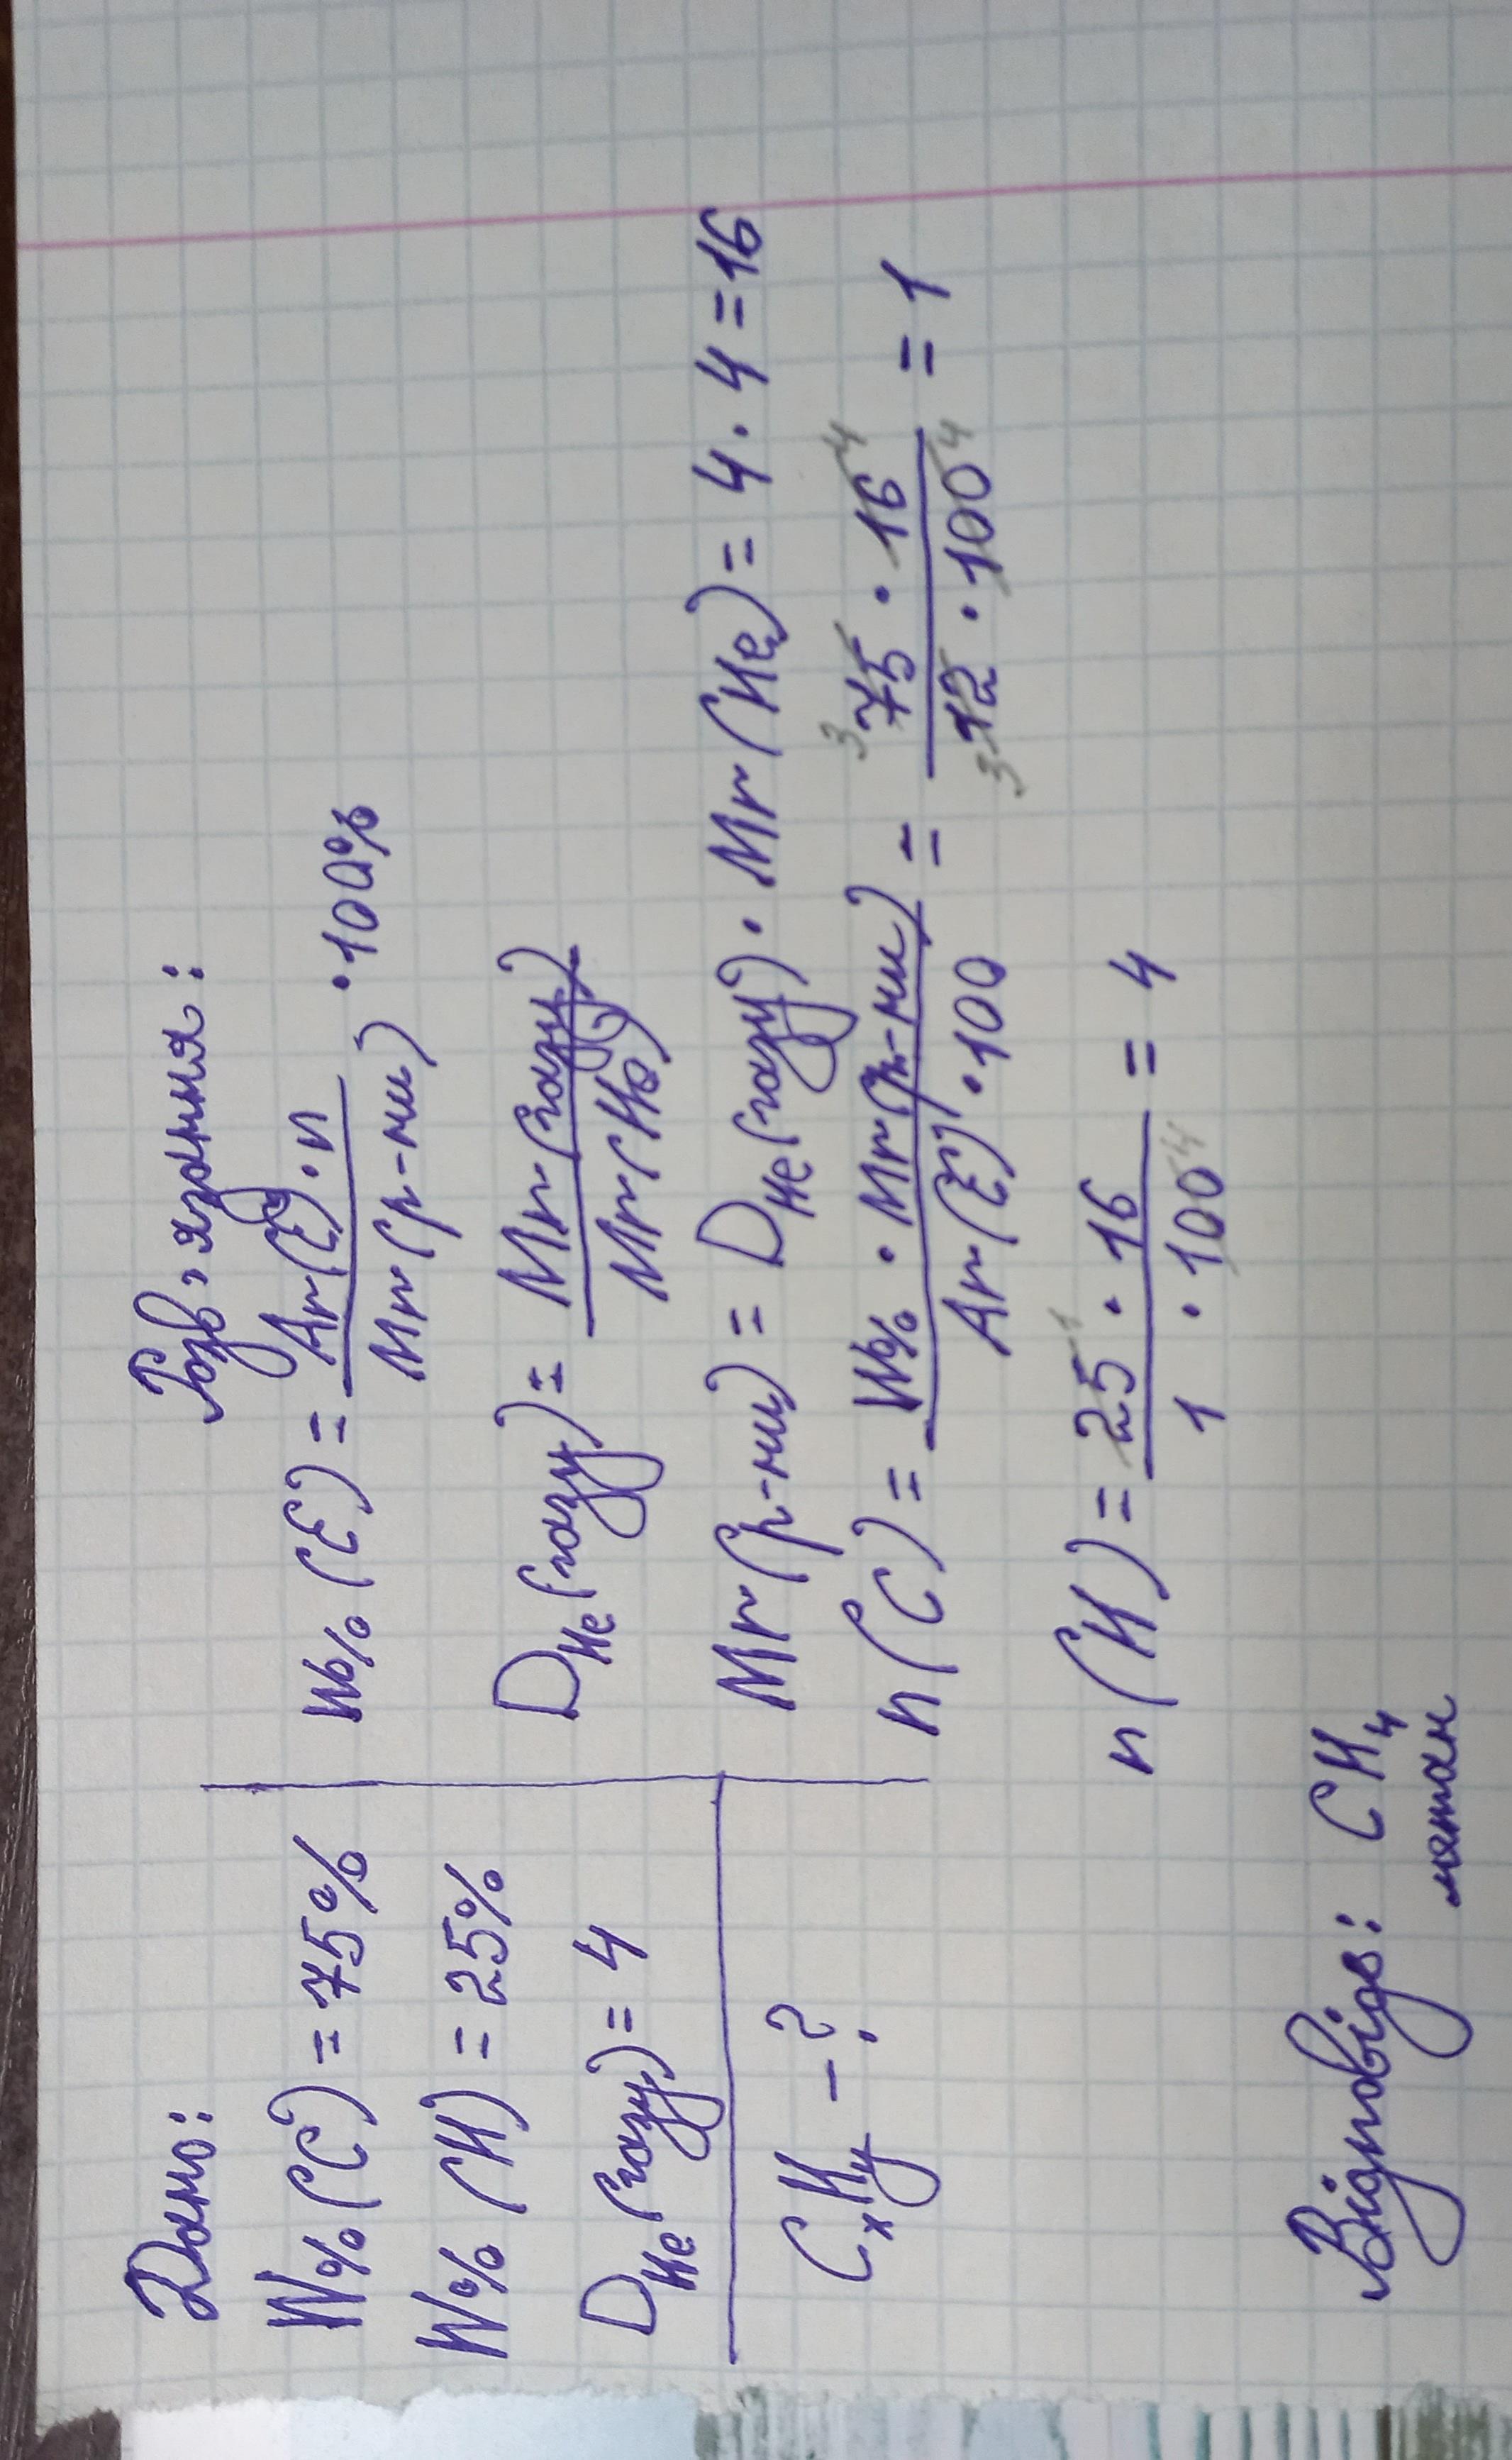 Дано:
W%(C) = 75%
W%(H) = 25%
D He (газу) = 4
CxHy - ?
Розв'язання:
W%(E) = Ar(E)·n / Mr(р-ни) · 100%
D He (газу) = Mr(газу) / Mr(He)
Mr(р-ни) = D He (газу) · Mr(He) = 4 · 4 = 16
n(C) = W% · Mr(р-ни) / Ar(E) · 100 = 3 75 · 16 4 / 3 12 · 100 4 = 1
n(H) = 25 1 · 16 / 1 · 100 4 = 4
Відповідь: CH4
метан